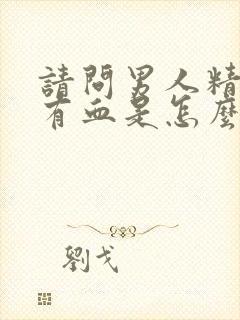 請問男人精
有血是怎麼
劉戈